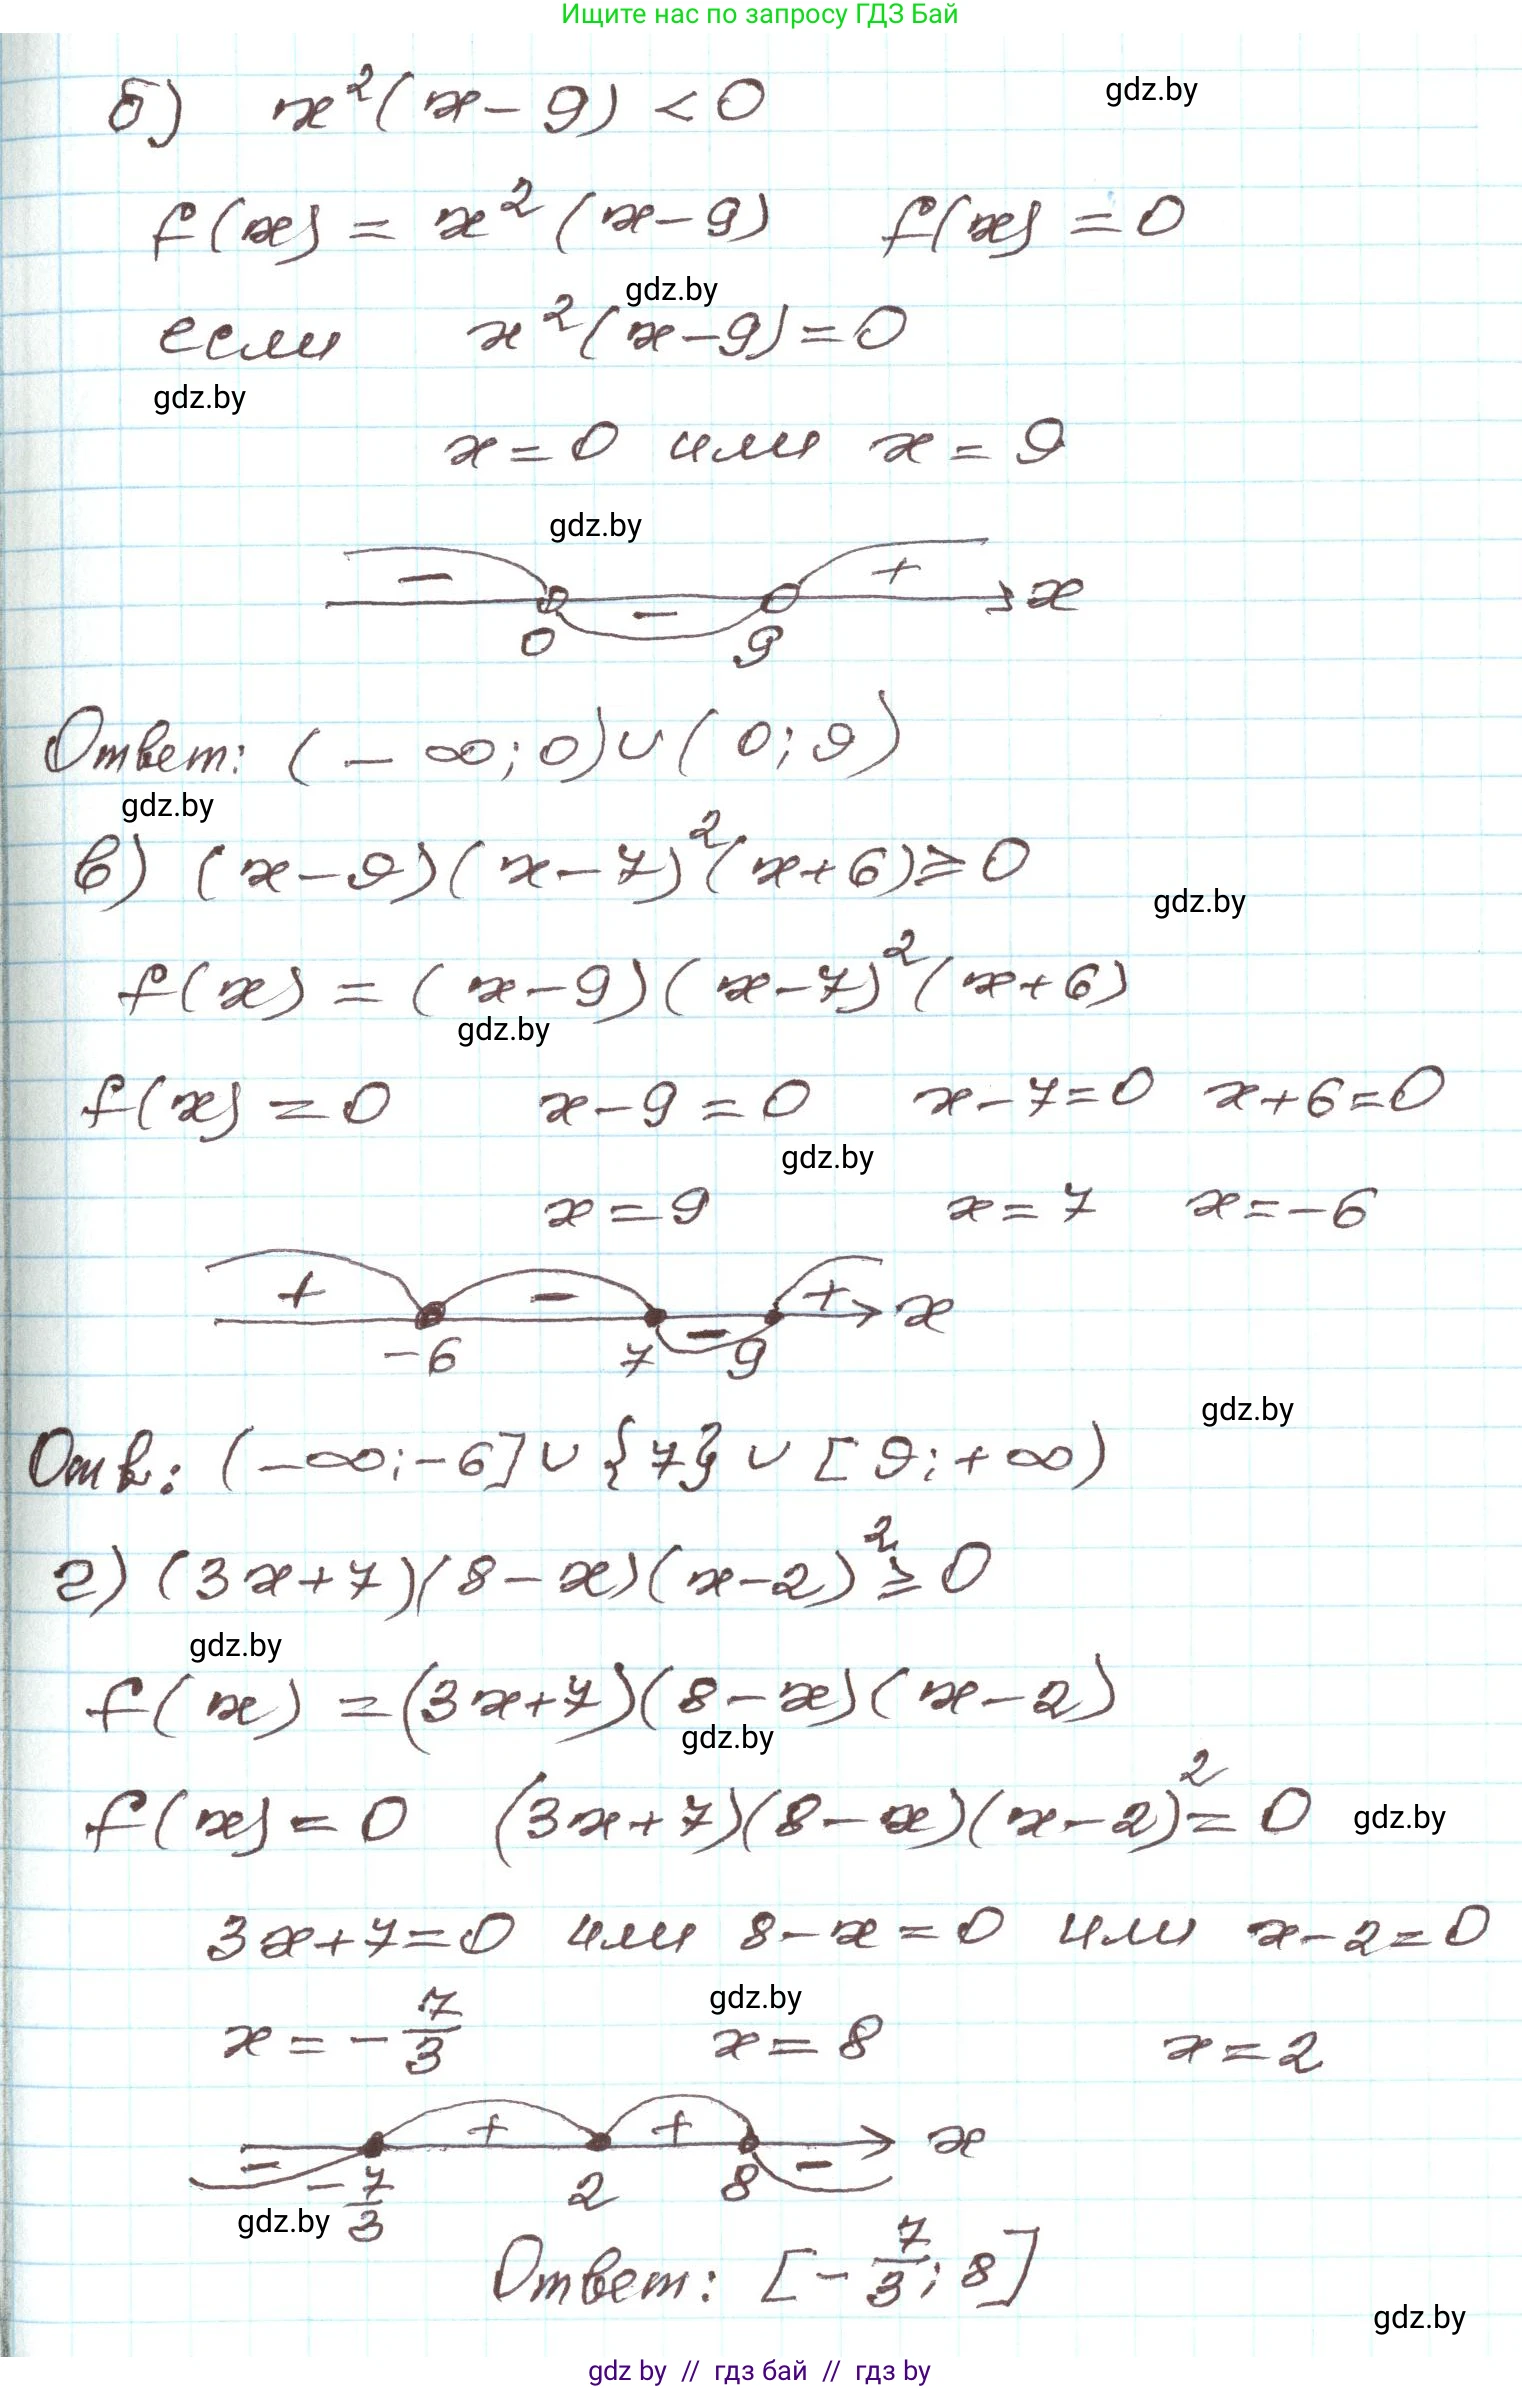 Ищите нас по запросу ГДЗ Бай
б) x²(x-9) < 0
gdz.by
f(x) = x²(x-9) f(x) = 0
gdz.by
если x²(x-9)=0
gdz.by
x=0 или x=9
gdz.by
- - + x
0 9
Ответ: (-∞;0)∪(0;9)
gdz.by
в) (x-9)(x-7)²(x+6)≥0
gdz.by
f(x) = (x-9)(x-7)²(x+6)
gdz.by
f(x) = 0 x-9=0 x-7=0 x+6=0
gdz.by
x=9 x=7 x=-6
+ - - + x
-6 7 9
gdz.by
Отв: (-∞;-6]∪{7}∪[9;+∞)
г) (3x+7)(8-x)(x-2)²≥0
gdz.by
f(x) = (3x+7)(8-x)(x-2)
gdz.by
f(x) = 0 (3x+7)(8-x)(x-2)²=0
gdz.by
3x+7=0 или 8-x=0 или x-2=0
gdz.by
x=-7/3 x=8 x=2
- + + - x
-7/3 2 8
gdz.by
Ответ: [-7/3; 8]
gdz.by
gdz by // гдз бай // гдз by